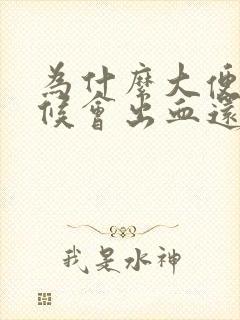 為什麼大便
候會出血還
我是水神